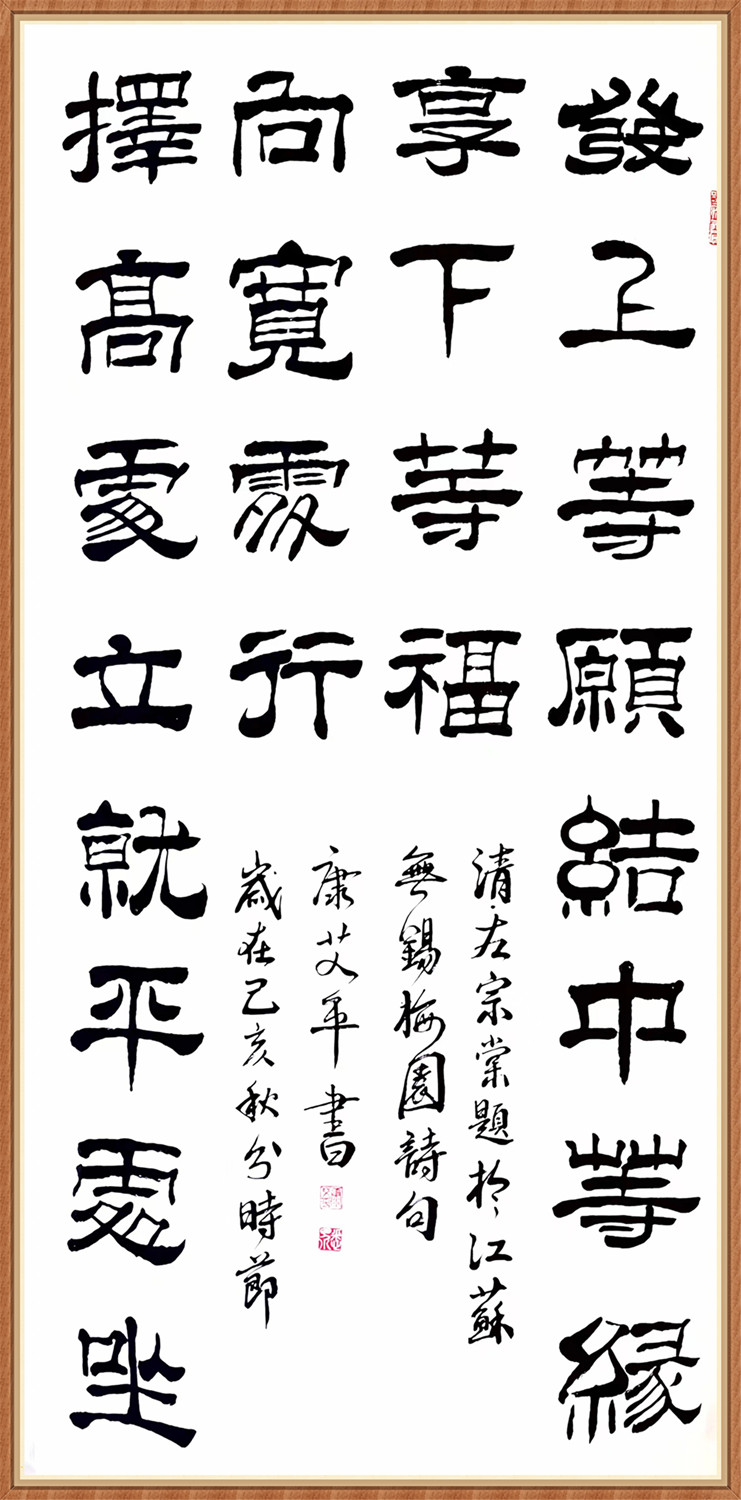 發上等願結中等緣
享下等福
擇高處立就平處坐
向寬處行
清·左宗棠題於江蘇
無錫梅園詩句
康艾書
歲在己亥秋分時節